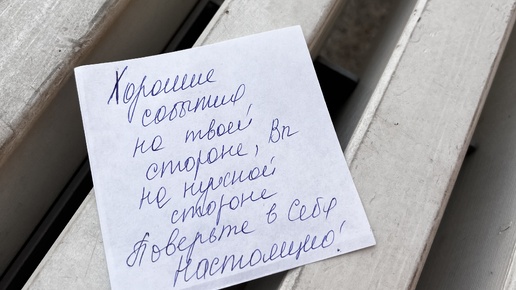 Хорошие
события
на твоей
стороне, Вы
на нужной
стороне
Поверьте в Себя
настоящно!